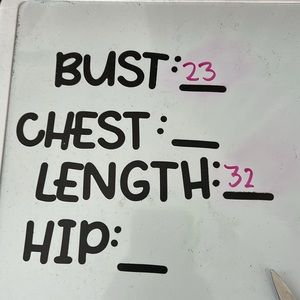 BUST: 23
CHEST: __
LENGTH: 32
HIP: __